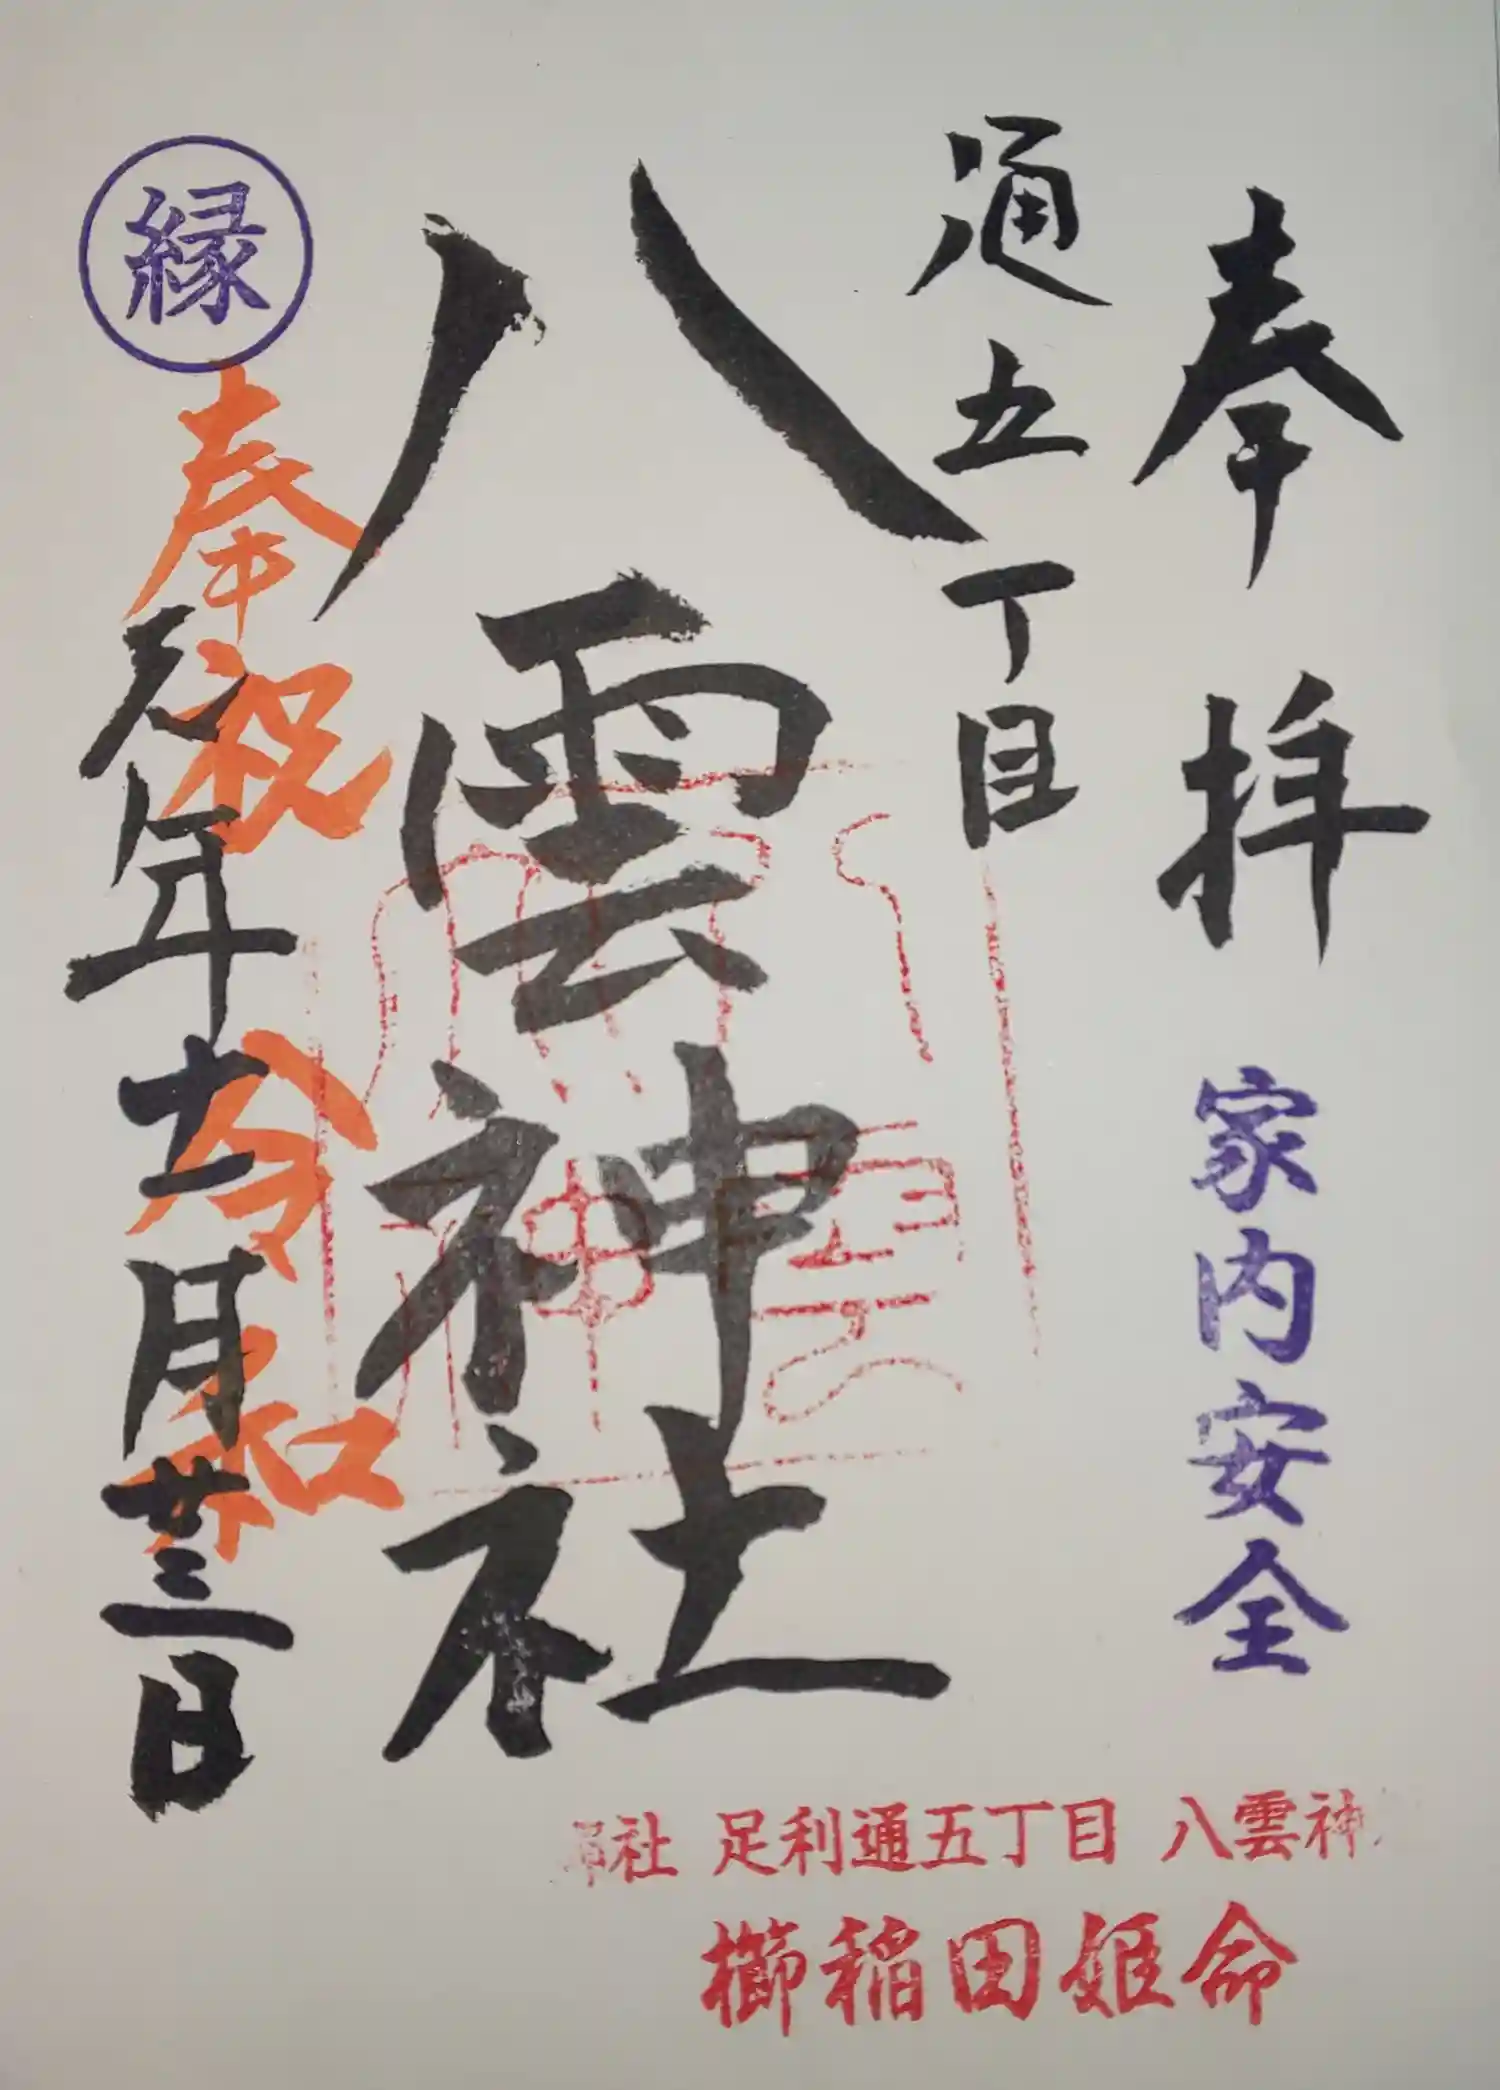 奉拝
家内安全
通五丁目
八雲神社
縁
奉祝
令和
元年十二月廿三日
社 足利通五丁目 八雲神
櫛稲田姫命